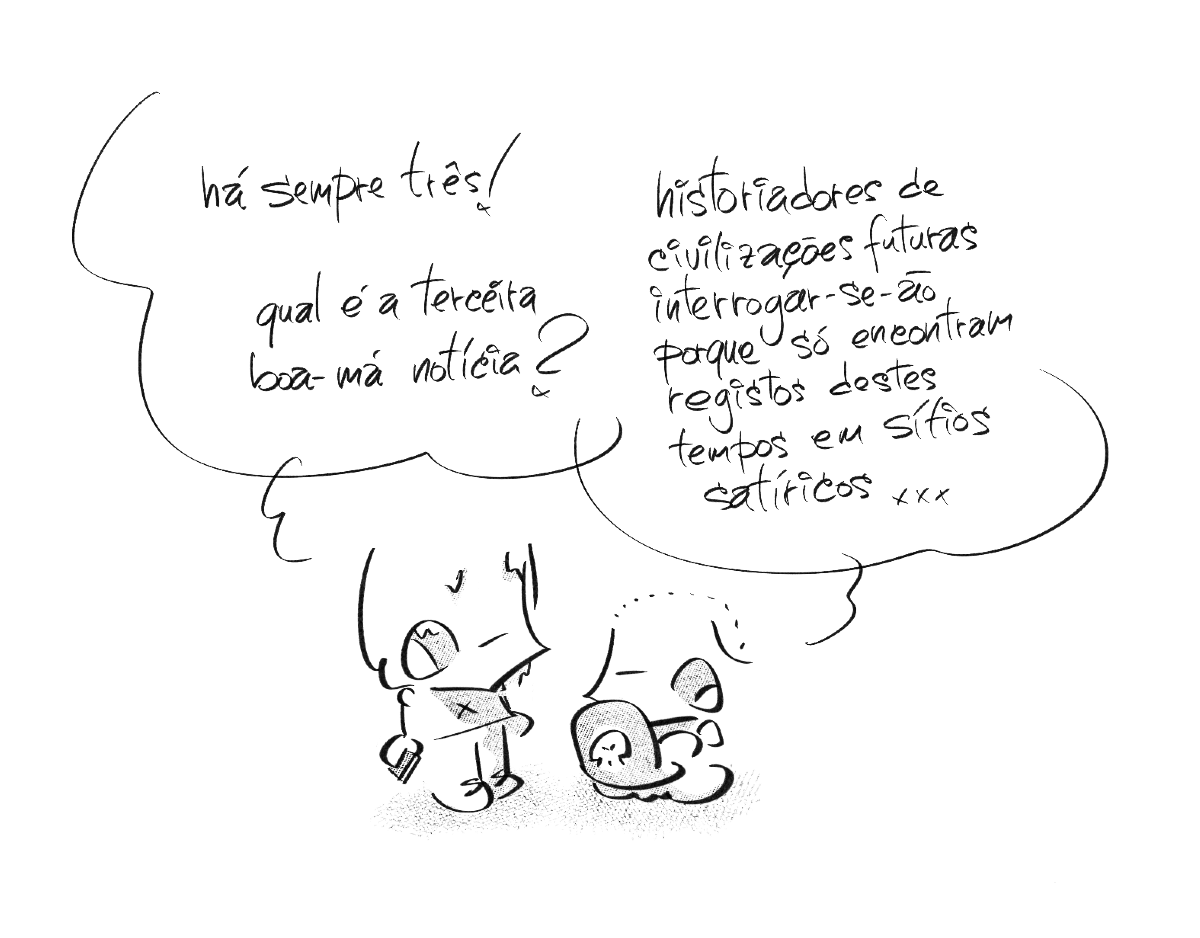 há sempre três!
qual é a terceira
boa-má notícia?
historiadores de
civilizações futuras
interrogar-se-ão
porque só encontram
registos destes
tempos em sítios
satíricos xxx